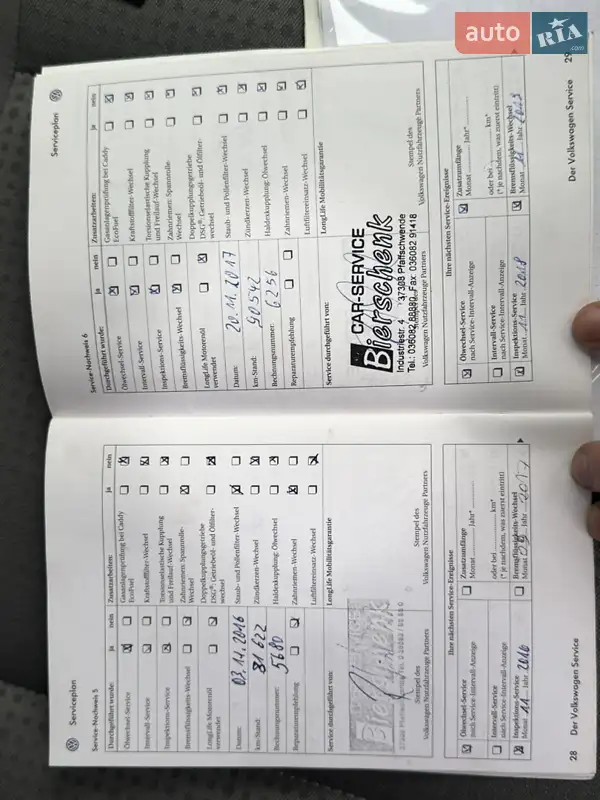 auto RIA.com
Serviceplan
Service-Nachweis 5
Durchgeführt wurde: ja nein
Ölwechsel-Service
Intervall-Service
Inspektions-Service
Bremsflüssigkeits-Wechsel
LongLife Motorenöl verwendet
Datum: 03.11.2016
km-Stand: 81622
Rechnungsnummer: 5680
Reparaturempfehlung
Zusatzarbeiten: ja nein
Gasanlagenprüfung bei Caddy EcoFuel
Kraftstofffilter-Wechsel
Torsionselastische Kupplung und Freilauf-Wechsel
Zahnriemen: Spannrolle-Wechsel
Doppelkupplungsgetriebe DSG®: Getriebeöl- und Ölfilter-wechsel
Staub- und Pollenfilter-Wechsel
Zündkerzen-Wechsel
Haldexkupplung: Ölwechsel
Zahnriemen-Wechsel
Luftfiltereinsatz-Wechsel
Service durchgeführt von:
LongLife Mobilitätsgarantie
Stempel des
Volkswagen Nutzfahrzeuge Partners
Volkswagen Nutzfahrzeuge Partners
Ihre nächsten Service-Ereignisse
Ölwechsel-Service
nach Service-Intervall-Anzeige
Intervall-Service
nach Service-Intervall-Anzeige
Inspektions-Service
Monat 11 Jahr 2016
Zusatzumfänge
Monat Jahr*
oder bei km*
(* je nachdem, was zuerst eintritt)
Bremsflüssigkeits-Wechsel
Monat Jahr 2017
28 Der Volkswagen Service
Serviceplan
Service-Nachweis 6
Durchgeführt wurde: ja nein
Ölwechsel-Service
Intervall-Service
Inspektions-Service
Bremsflüssigkeits-Wechsel
LongLife Motorenöl verwendet
Datum: 20.11.2017
km-Stand: 90542
Rechnungsnummer: 6256
Reparaturempfehlung
Zusatzarbeiten: ja nein
Gasanlagenprüfung bei Caddy EcoFuel
Kraftstofffilter-Wechsel
Torsionselastische Kupplung und Freilauf-Wechsel
Zahnriemen: Spannrolle-Wechsel
Doppelkupplungsgetriebe DSG®: Getriebeöl- und Ölfilter-wechsel
Staub- und Pollenfilter-Wechsel
Zündkerzen-Wechsel
Haldexkupplung: Ölwechsel
Zahnriemen-Wechsel
Luftfiltereinsatz-Wechsel
Service durchgeführt von:
LongLife Mobilitätsgarantie
CAR-SERVICE
Bierschenk
Industriestr. 4 37308 Pfaffschwende
Tel.: 036082 88889 Fax: 036082 91418
Stempel des
Volkswagen Nutzfahrzeuge Partners
Volkswagen Nutzfahrzeuge Partners
Ihre nächsten Service-Ereignisse
Ölwechsel-Service
nach Service-Intervall-Anzeige
Intervall-Service
nach Service-Intervall-Anzeige
Inspektions-Service
Monat 11 Jahr 2018
Zusatzumfänge
Monat Jahr*
oder bei km*
(* je nachdem, was zuerst eintritt)
Bremsflüssigkeits-Wechsel
Monat 11 Jahr 2019
Der Volkswagen Service 29